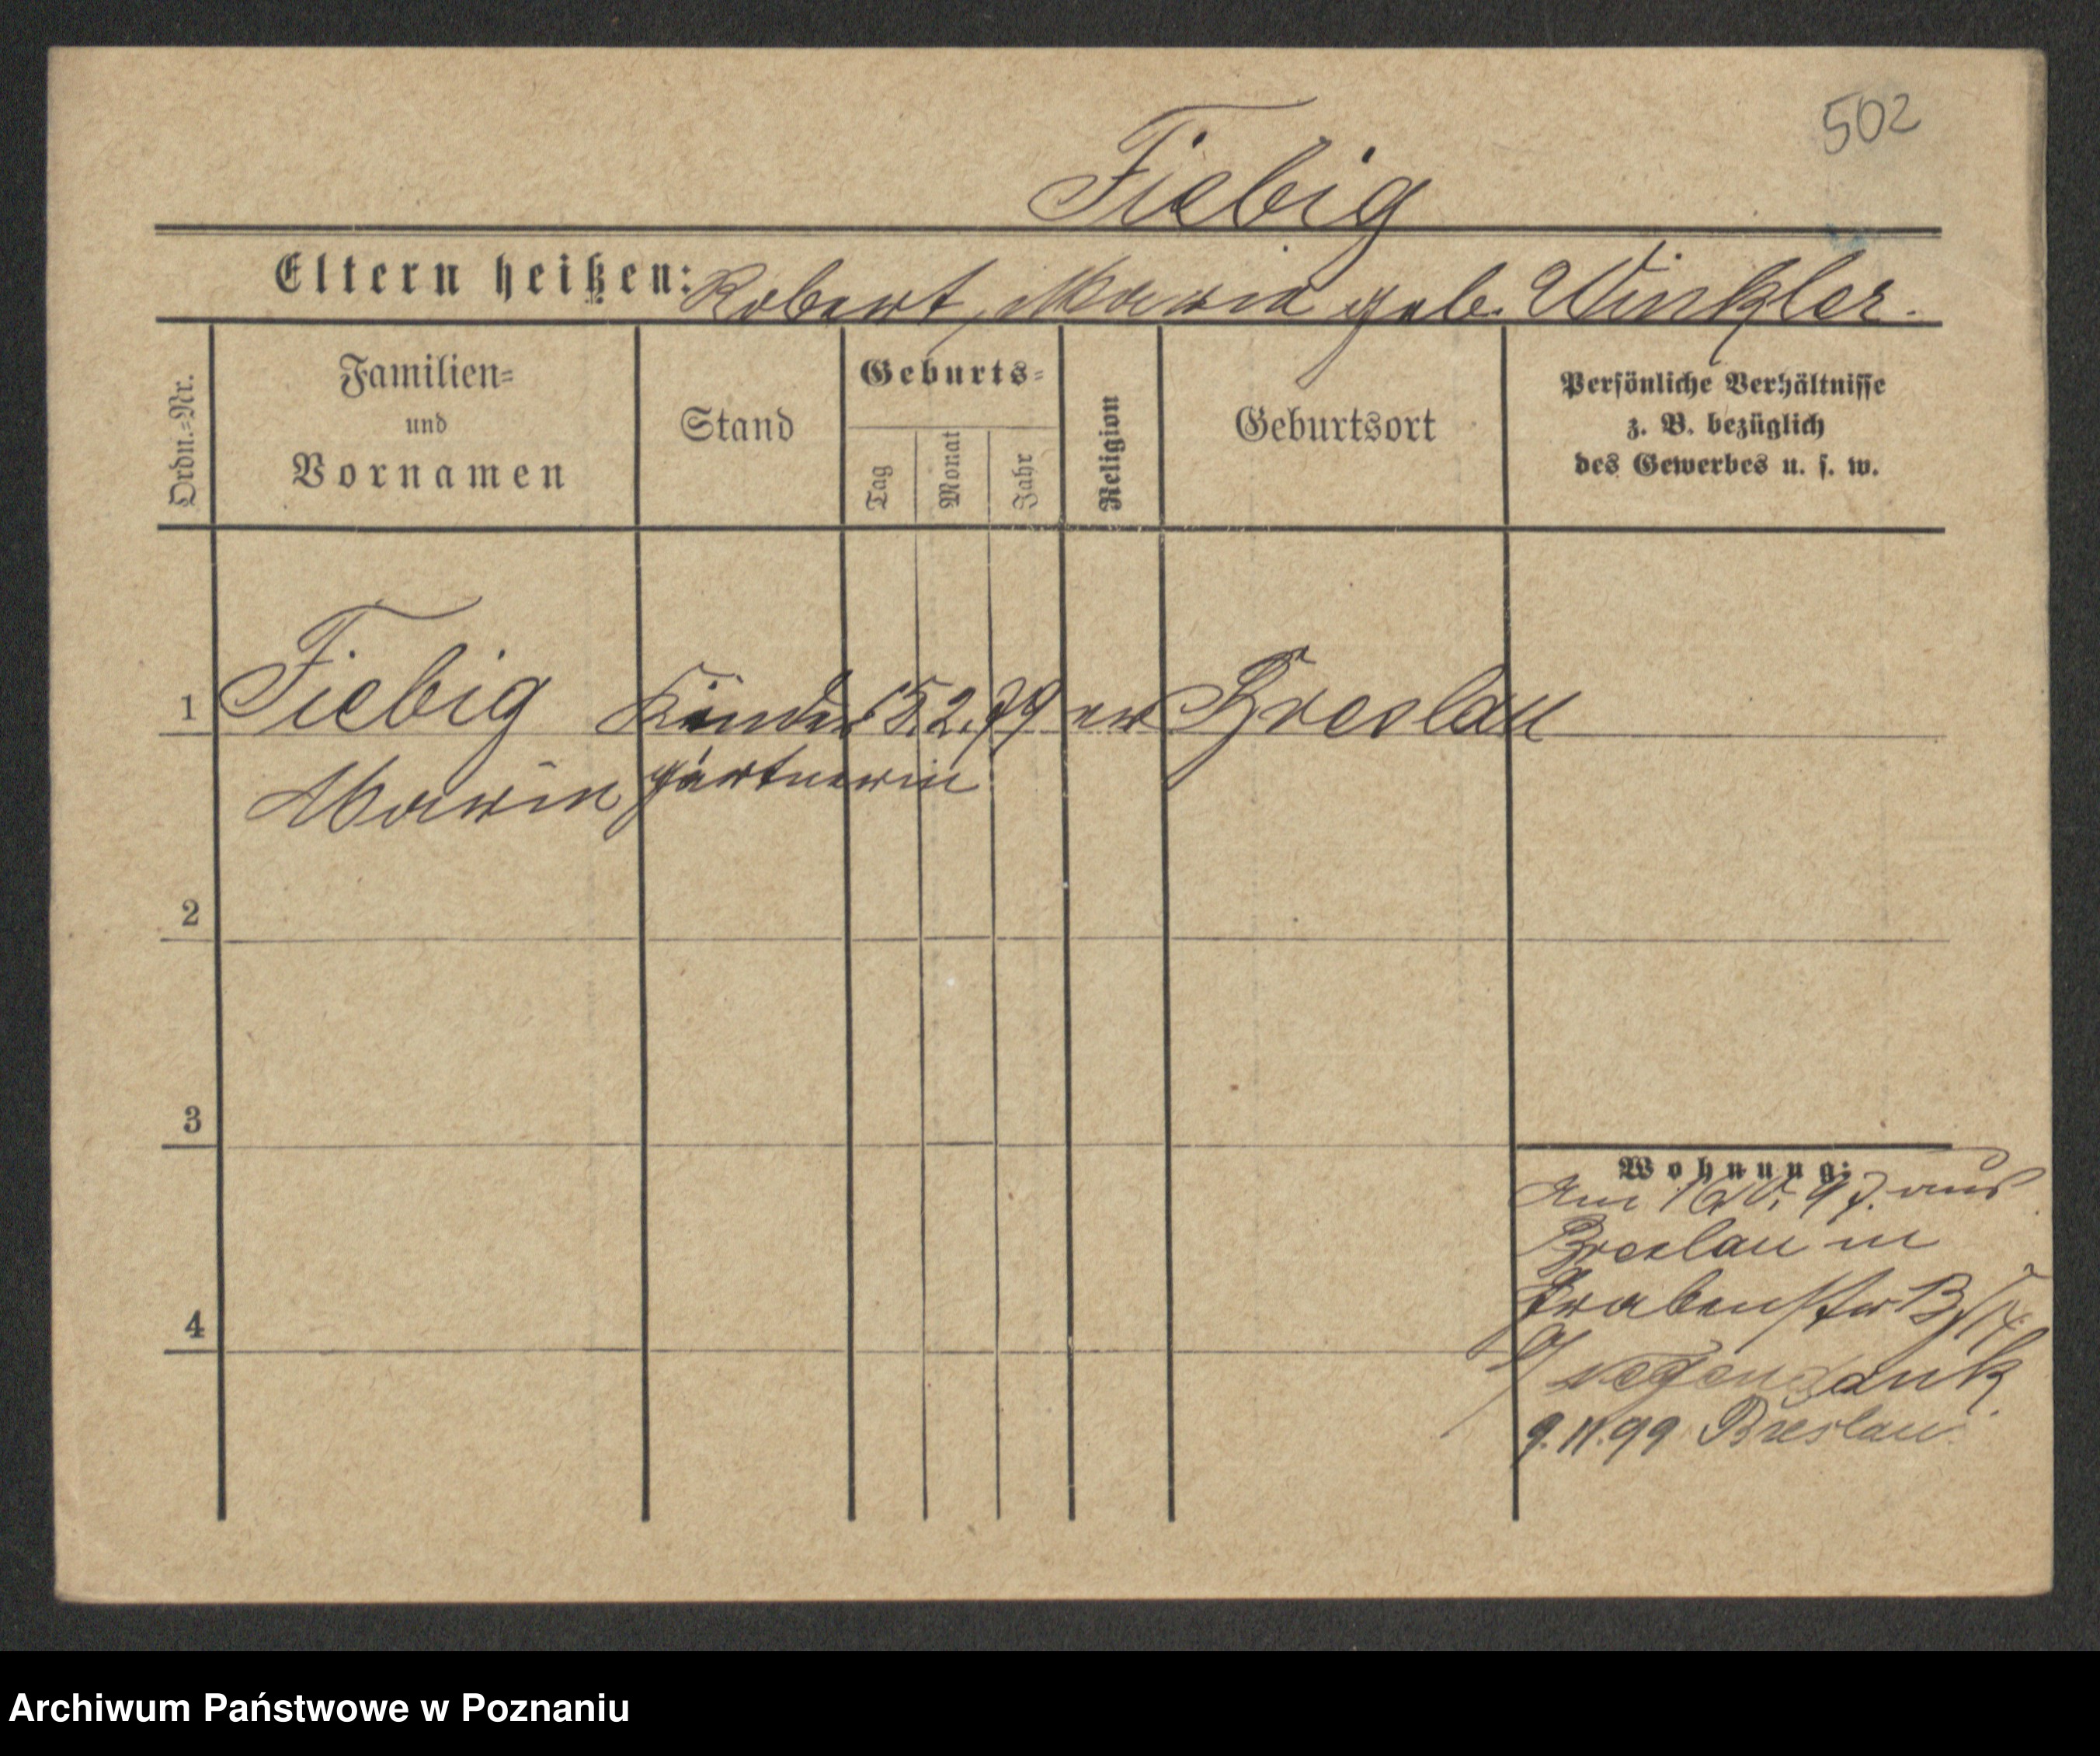 502
Fiebig
Eltern heißen: Robert, Maria geb. Winkler.
Ordn.-Nr.
Familien-
und
Vornamen
Stand
Geburts-
Tag
Monat
Jahr
Religion
Geburtsort
Persönliche Verhältnisse
z. B. bezüglich
des Gewerbes u. s. w.
1 Fiebig Kinder 15.2.79 ev Breslau
Maria gärtnerin
2
3
4
Wohnung:
Am aus
Breslau in
Grabenstr
9.11.99 Breslau
Archiwum Państwowe w Poznaniu